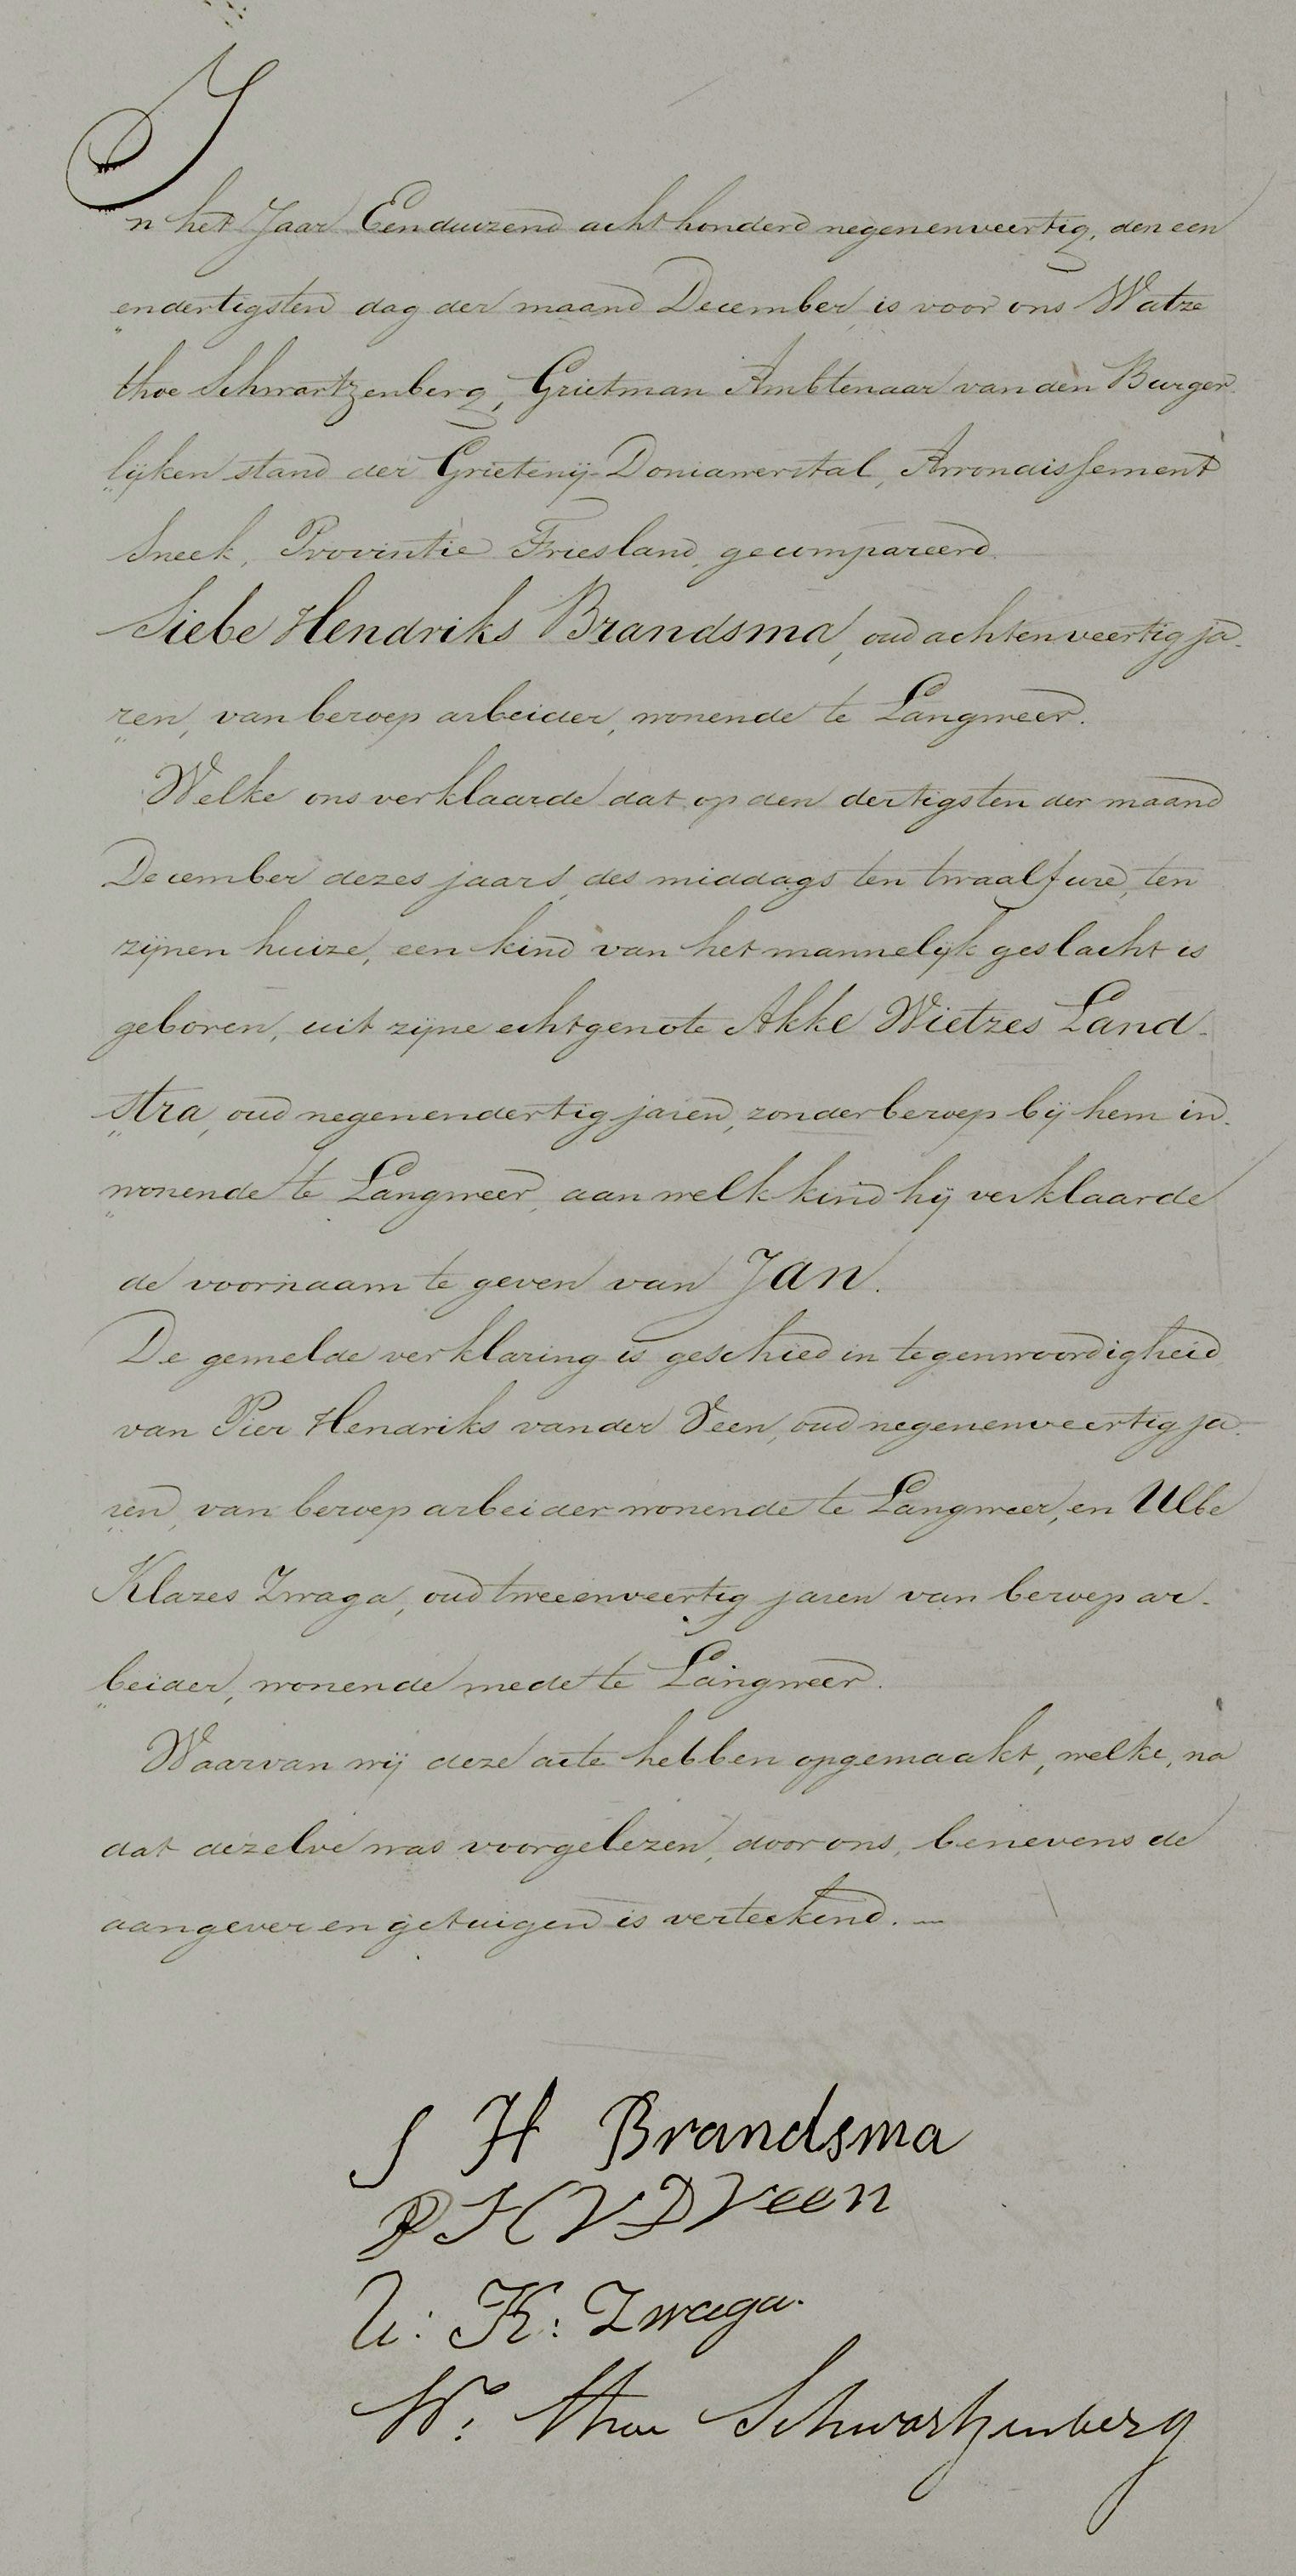 In het Jaar Eenduizend achthonderd negenenveertig, den een
endertigsten dag der maand December, is voor ons Watze
thoe Schwartzenberg, Grietman Ambtenaar van den Burger-
lijken stand der Grietenij Doniawerstal, Arrondissement
Sneek, Provintie Friesland, gecompareerd.
Siebe Hendriks Brandsma, oud achtenveertig ja-
ren, van beroep arbeider, wonende te Langweer.
Welke ons verklaarde dat op den dertigsten der maand
December dezes jaars, des middags ten twaalf ure, ten
zijnen huize, een kind van het mannelijk geslacht is
geboren, uit zijne echtgenote Akke Wietzes Land-
stra, oud negenendertig jaren, zonder beroep bij hem in-
wonende te Langweer, aan welk kind hij verklaarde
de voornaam te geven van Jan.
De gemelde verklaring is geschied in tegenwoordigheid
van Pier Hendriks van der Veen, oud negenenveertig ja-
ren, van beroep arbeider wonende te Langweer, en Ulbe
Klazes Zwaga, oud tweeenveertig jaren van beroep ar-
beider, wonende mede te Langweer.
Waarvan wij deze acte hebben opgemaakt, welke, na
dat dezelve was voorgelezen, door ons, benevens de
aangever en getuigen is verteekend. —
S H Brandsma
P H V D Veen
U: K: Zwaga.
W: thoe Schwartzenberg